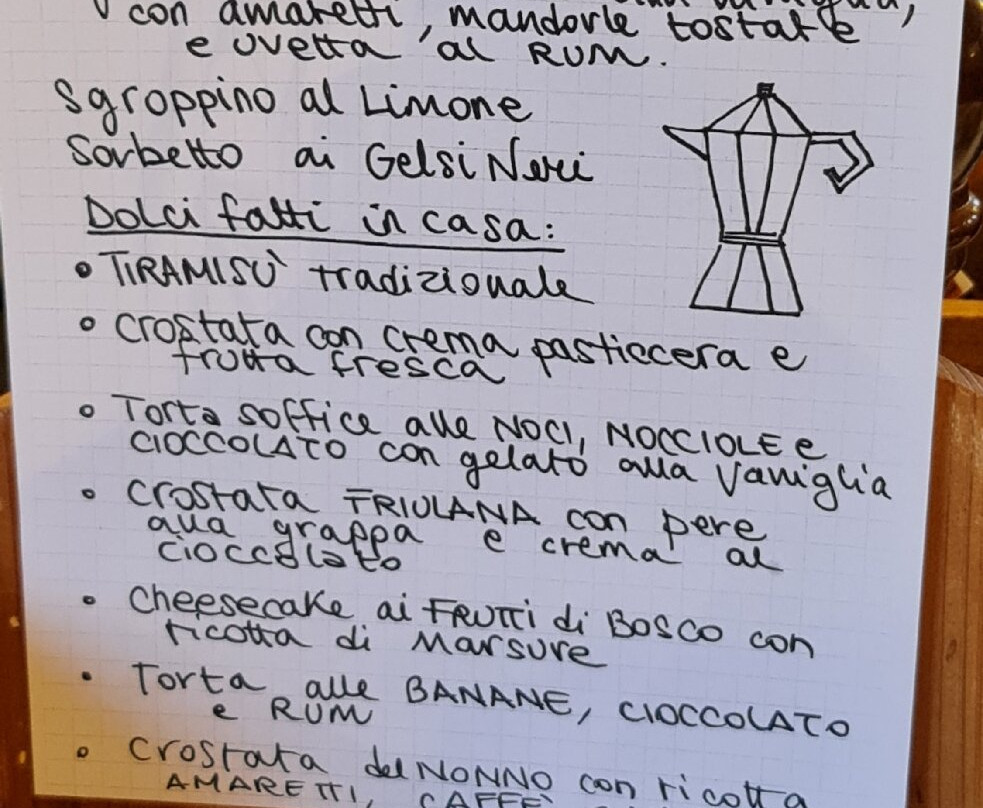 con amaretti, mandorle tostate
e uvetta al RUM.
Sgroppino al Limone
Sorbetto ai Gelsi Neri
Dolci fatti in casa:
• TIRAMISÙ tradizionale
• Crostata con crema pasticcera e
frutta fresca
• Torta soffice alle NOCI, NOCCIOLE e
CIOCCOLATO con gelato alla Vaniglia
• Crostata FRIULANA con pere
alla grappa e crema al
cioccolato
• Cheesecake ai FRUTTI di BOSCO con
ricotta di Marsure
• Torta alle BANANE, CIOCCOLATO
e RUM
• Crostata del NONNO con ricotta
AMARETTI, CAFFÈ